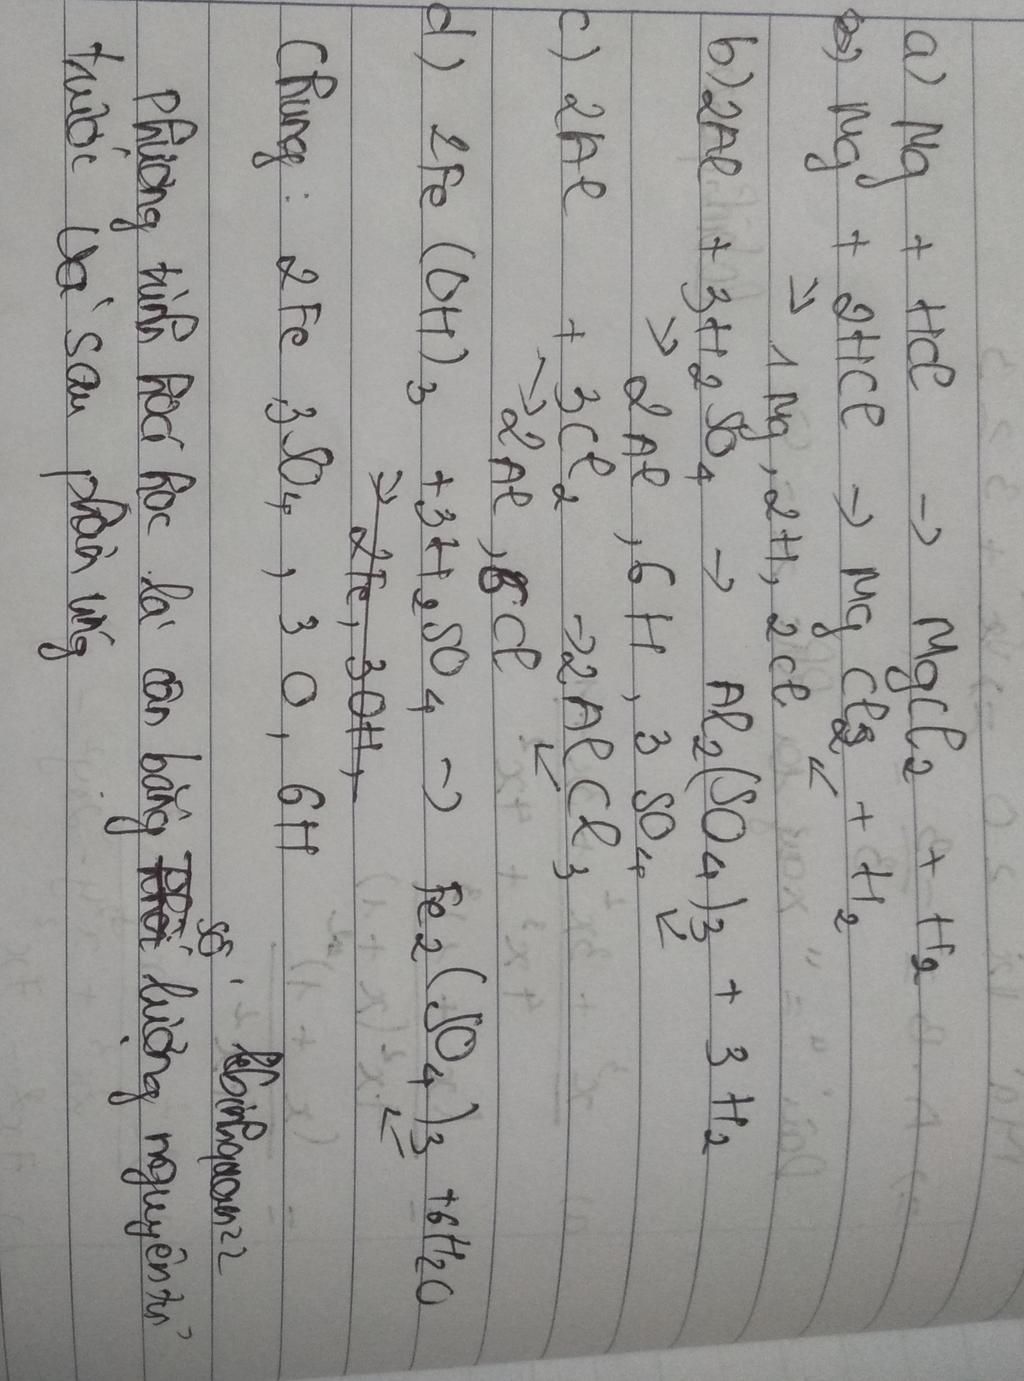 a) Mg + HCl → MgCl2 + H2
Mg + 2HCl → MgCl2 + H2
⇒ 1 Mg, 2H, 2Cl
b) 2Al + 3H2SO4 → Al2(SO4)3 + 3H2
⇒ 2Al, 6H, 3SO4
c) 2Al + 3Cl2 → 2AlCl3
→ 2Al, 6Cl
d) 2Fe(OH)3 + 3H2SO4 → Fe2(SO4)3 + 6H2O
⇒ 2Fe, 3OH,
Chung: 2Fe 3SO4, 3O, 6H
số
Phương trình hoá học là cân bằng lượng nguyên tử
trước và sau phản ứng